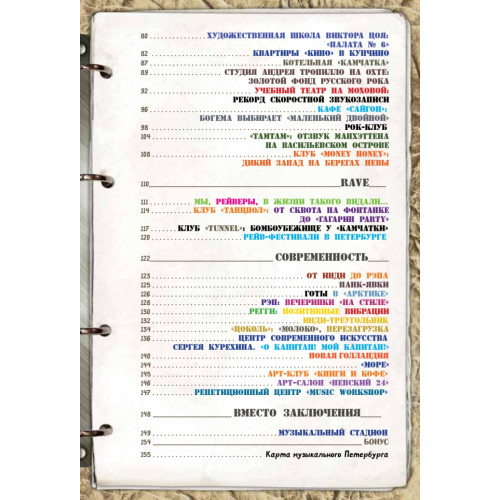 80 ХУДОЖЕСТВЕННАЯ ШКОЛА ВИКТОРА ЦОЯ:
«ПАЛАТА № 6»
82 КВАРТИРЫ «КИНО» В КУПЧИНО
87 КОТЕЛЬНАЯ «КАМЧАТКА»
89 СТУДИЯ АНДРЕЯ ТРОПИЛЛО НА ОХТЕ:
ЗОЛОТОЙ ФОНД РУССКОГО РОКА
92 УЧЕБНЫЙ ТЕАТР НА МОХОВОЙ:
РЕКОРД СКОРОСТНОЙ ЗВУКОЗАПИСИ
96 КАФЕ «САЙГОН»:
БОГЕМА ВЫБИРАЕТ «МАЛЕНЬКИЙ ДВОЙНОЙ»
98 РОК-КЛУБ
104 «ТАМТАМ»: ОТЗВУК МАНХЭТТЕНА
НА ВАСИЛЬЕВСКОМ ОСТРОВЕ
108 КЛУБ «MONEY HONEY»:
ДИКИЙ ЗАПАД НА БЕРЕГАХ НЕВЫ
110 RAVE
111 МЫ, РЕЙВЕРЫ, В ЖИЗНИ ТАКОГО ВИДАЛИ...
114 КЛУБ «ТАНЦПОЛ»: ОТ СКВОТА НА ФОНТАНКЕ
ДО «ГАГАРИН PARTY»
117 КЛУБ «TUNNEL»: БОМБОУБЕЖИЩЕ У «КАМЧАТКИ»
120 РЕЙВ-ФЕСТИВАЛИ В ПЕТЕРБУРГЕ
122 СОВРЕМЕННОСТЬ
123 ОТ ИНДИ ДО РЭПА
125 ПАНК-ЯВКИ
126 ГОТЫ В «АРКТИКЕ»
128 РЭП: ВЕЧЕРИНКИ «НА СТИЛЕ»
130 РЕГГИ: ПОЗИТИВНЫЕ ВИБРАЦИИ
132 ИНДИ-ТРЕУГОЛЬНИК
134 «ЦОКОЛЬ»: «МОЛОКО», ПЕРЕЗАГРУЗКА
136 ЦЕНТР СОВРЕМЕННОГО ИСКУССТВА
СЕРГЕЯ КУРЕХИНА. «О КАПИТАН! МОЙ КАПИТАН!»
140 НОВАЯ ГОЛЛАНДИЯ
144 «МОРЕ»
145 АРТ-КЛУБ «КНИГИ И КОФЕ»
146 АРТ-САЛОН «НЕВСКИЙ 24»
147 РЕПЕТИЦИОННЫЙ ЦЕНТР «MUSIC WORKSHOP»
148 ВМЕСТО ЗАКЛЮЧЕНИЯ
149 МУЗЫКАЛЬНЫЙ СТАДИОН
154 БОНУС
155 Карта музыкального Петербурга